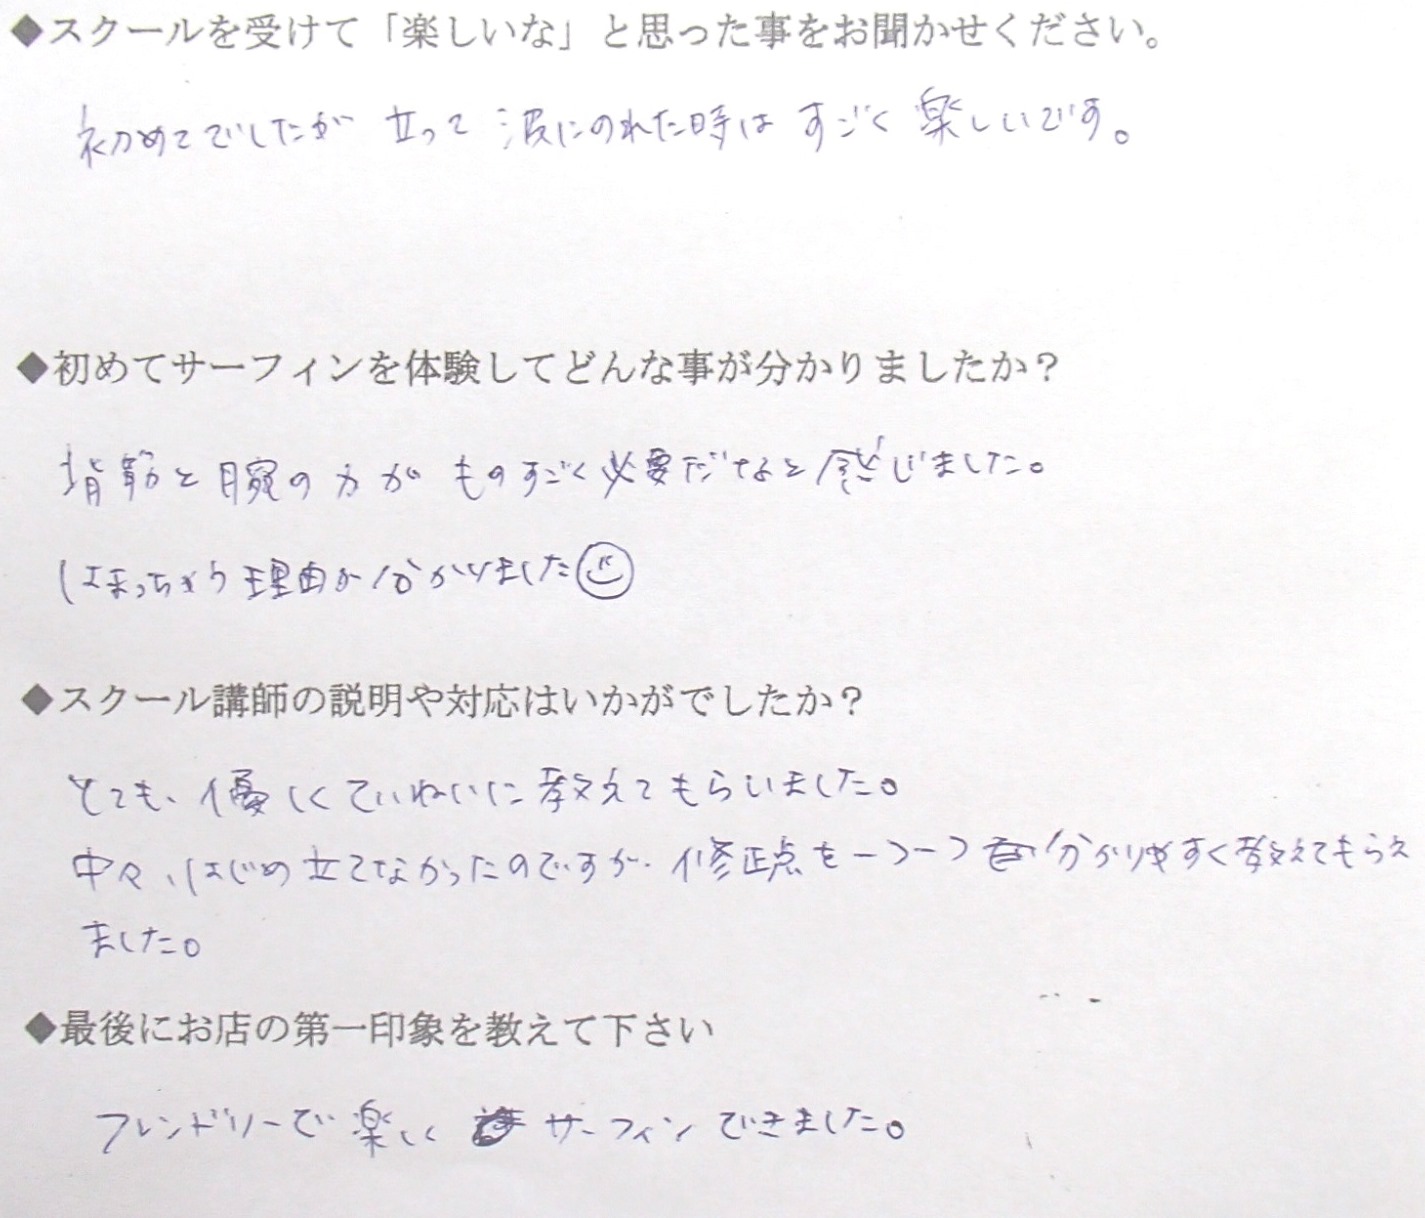 ◆スクールを受けて「楽しいな」と思った事をお聞かせください。
初めてでしたが 立って 波にのれた時は すごく 楽しいです。
◆初めてサーフィンを体験してどんな事が分かりましたか？
背筋と腕の力が ものすごく必要だなと感じました。
はまっちゃう理由が分かりました
◆スクール講師の説明や対応はいかがでしたか？
とても、優しくていねいに教えてもらいました。
中々、はじめ立てなかったのですが、修正点を一つ一つ 分かりやすく教えてもらえ
ました。
◆最後にお店の第一印象を教えて下さい
フレンドリーで楽しく サーフィンできました。